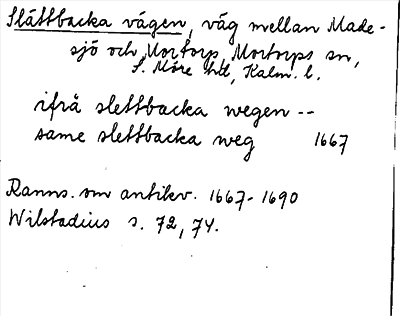 Slättbacka vägen, väg mellan Made-
sjö och Mortorp, Mortorps sn,
S. Möre hd, Kalm. l.
ifrå slettbacka wegen --
same slettbacka weg 1667
Ranns. om antikv. 1667-1690
Wilstadius s. 72, 74.